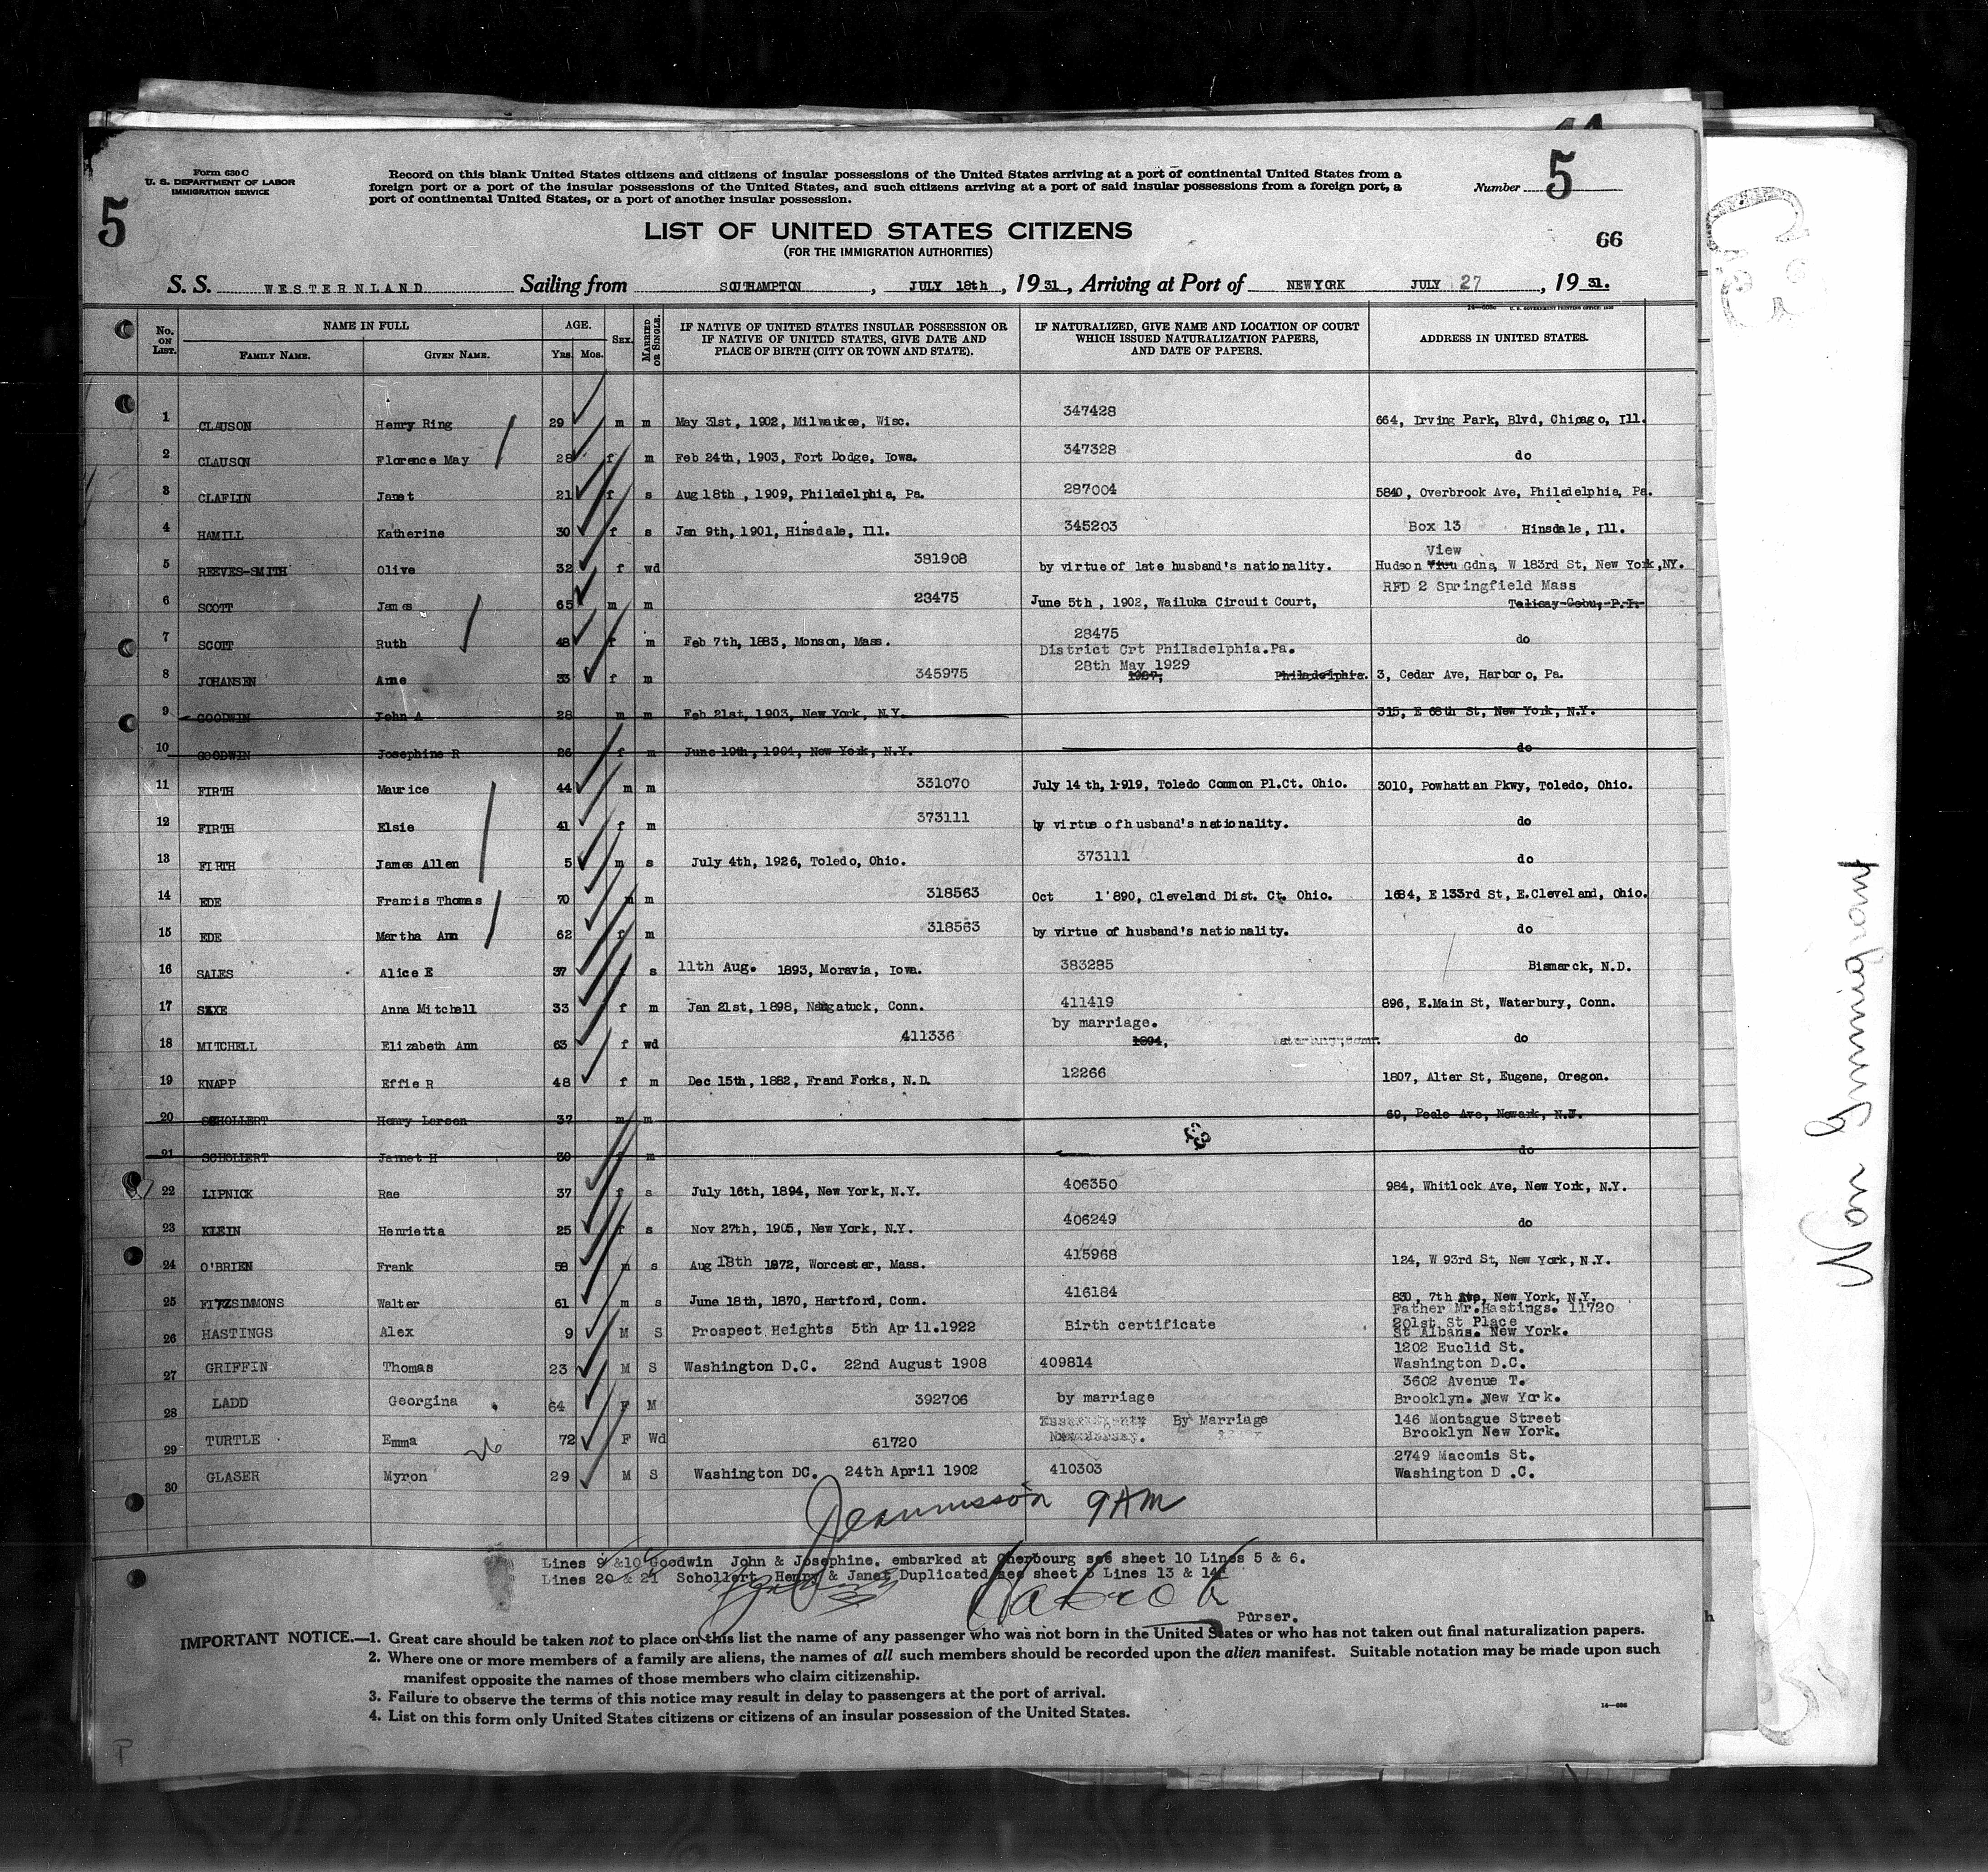 Form 630 C
U. S. DEPARTMENT OF LABOR
IMMIGRATION SERVICE
Record on this blank United States citizens and citizens of insular possessions of the United States arriving at a port of continental United States from a
foreign port or a port of the insular possessions of the United States, and such citizens arriving at a port of said insular possessions from a foreign port, a
port of continental United States, or a port of another insular possession.
Number 5
5
LIST OF UNITED STATES CITIZENS
(FOR THE IMMIGRATION AUTHORITIES)
66
S. S. WESTERNLAND Sailing from SOUTHAMPTON, JULY 18th, 1931, Arriving at Port of NEWYORK JULY 27, 1931.
No. on List. NAME IN FULL FAMILY NAME. GIVEN NAME. AGE. Yrs. Mos. Sex. MARRIED OR SINGLE. IF NATIVE OF UNITED STATES INSULAR POSSESSION OR IF NATIVE OF UNITED STATES, GIVE DATE AND PLACE OF BIRTH (CITY OR TOWN AND STATE). IF NATURALIZED, GIVE NAME AND LOCATION OF COURT WHICH ISSUED NATURALIZATION PAPERS, AND DATE OF PAPERS. ADDRESS IN UNITED STATES.
1 CLAUSON Henry Ring 29 m m May 31st, 1902, Milwaukee, Wisc. 347428 664, Irving Park, Blvd, Chicago, Ill.
2 CLAUSON Florence May 28 f m Feb 24th, 1903, Fort Dodge, Iowa. 347328 do
3 CLAFLIN Janet 21 f s Aug 18th, 1909, Philadelphia, Pa. 287004 5840, Overbrook Ave, Philadelphia, Pa.
4 HAMILL Katherine 30 f s Jan 9th, 1901, Hinsdale, Ill. 345203 Box 13 Hinsdale, Ill.
5 REEVES-SMITH Olive 32 f wd 381908 by virtue of late husband's nationality. View Hudson Gdns, W 183rd St, New York, NY.
6 SCOTT James 65 m m 23475 June 5th, 1902, Wailuka Circuit Court, RFD 2 Springfield Mass Talisay-Cebu, P.I.
7 SCOTT Ruth 48 f m Feb 7th, 1883, Monson, Mass. 28475 do
8 JOHANSEN Arne 33 f m 345975 District Crt Philadelphia.Pa. 28th May 1929 1927, Philadelphia. 3, Cedar Ave, Harboro, Pa.
9 GOODWIN John A 28 m m Feb 21st, 1903, New York, N.Y. 315, E 68th St, New York, N.Y.
10 GOODWIN Josephine R 26 f m June 19th, 1904, New York, N.Y. do
11 FIRTH Maurice 44 m m 331070 July 14th, 1919, Toledo Common Pl.Ct. Ohio. 3010, Powhattan Pkwy, Toledo, Ohio.
12 FIRTH Elsie 41 f m 373111 by virtue of husband's nationality. do
13 FIRTH James Allen 5 m s July 4th, 1926, Toledo, Ohio. 373111 do
14 EDE Francis Thomas 70 m m 318563 Oct 1'890, Cleveland Dist. Ct. Ohio. 1684, E 133rd St, E.Cleveland, Ohio.
15 EDE Martha Ann 62 f m 318563 by virtue of husband's nationality. do
16 SALES Alice E 37 f s 11th Aug. 1893, Moravia, Iowa. 383285 Bismarck, N.D.
17 SAXE Anna Mitchell 33 f m Jan 21st, 1898, Naugatuck, Conn. 411419 896, E.Main St, Waterbury, Conn.
18 MITCHELL Elizabeth Ann 63 f wd 411336 by marriage. 1894, Waterbury, Conn. do
19 KNAPP Effie R 48 f m Dec 15th, 1882, Frand Forks, N.D. 12266 1807, Alter St, Eugene, Oregon.
20 SCHOLLERT Henry Larsen 37 m m 69, Peale Ave, Newark, N.J.
21 SCHOLLERT Jannet H 30 f m do
22 LIPNICK Rae 37 f s July 16th, 1894, New York, N.Y. 406350 984, Whitlock Ave, New York, N.Y.
23 KLEIN Henrietta 25 f s Nov 27th, 1905, New York, N.Y. 406249 do
24 O'BRIEN Frank 58 m s Aug 18th 1872, Worcester, Mass. 415968 124, W 93rd St, New York, N.Y.
25 FITZSIMMONS Walter 61 m s June 18th, 1870, Hartford, Conn. 416184 830, 7th Ave, New York, N.Y.
26 HASTINGS Alex 9 M S Prospect Heights 5th April.1922 Birth certificate Father Mr.Hastings. 11720 201st St Place St Albans. New York.
27 GRIFFIN Thomas 23 M S Washington D.C. 22nd August 1908 409814 1202 Euclid St. Washington D.C.
28 LADD Georgina 64 F M 392706 by marriage 3602 Avenue T. Brooklyn. New York.
29 TURTLE Emma 72 F Wd 61720 By Marriage 146 Montague Street Brooklyn New York.
30 GLASER Myron 29 M S Washington DC. 24th April 1902 410303 2749 Macomis St. Washington D.C.
9 AM
Lines 9 &10 Goodwin John & Josephine. embarked at Cherbourg see sheet 10 Lines 5 & 6.
Lines 20 & 21 Schollert Henry & Janet Duplicated see sheet 5 Lines 13 & 14
Purser.
IMPORTANT NOTICE.—1. Great care should be taken not to place on this list the name of any passenger who was not born in the United States or who has not taken out final naturalization papers.
2. Where one or more members of a family are aliens, the names of all such members should be recorded upon the alien manifest. Suitable notation may be made upon such
manifest opposite the names of those members who claim citizenship.
3. Failure to observe the terms of this notice may result in delay to passengers at the port of arrival.
4. List on this form only United States citizens or citizens of an insular possession of the United States.
Non Immigrant